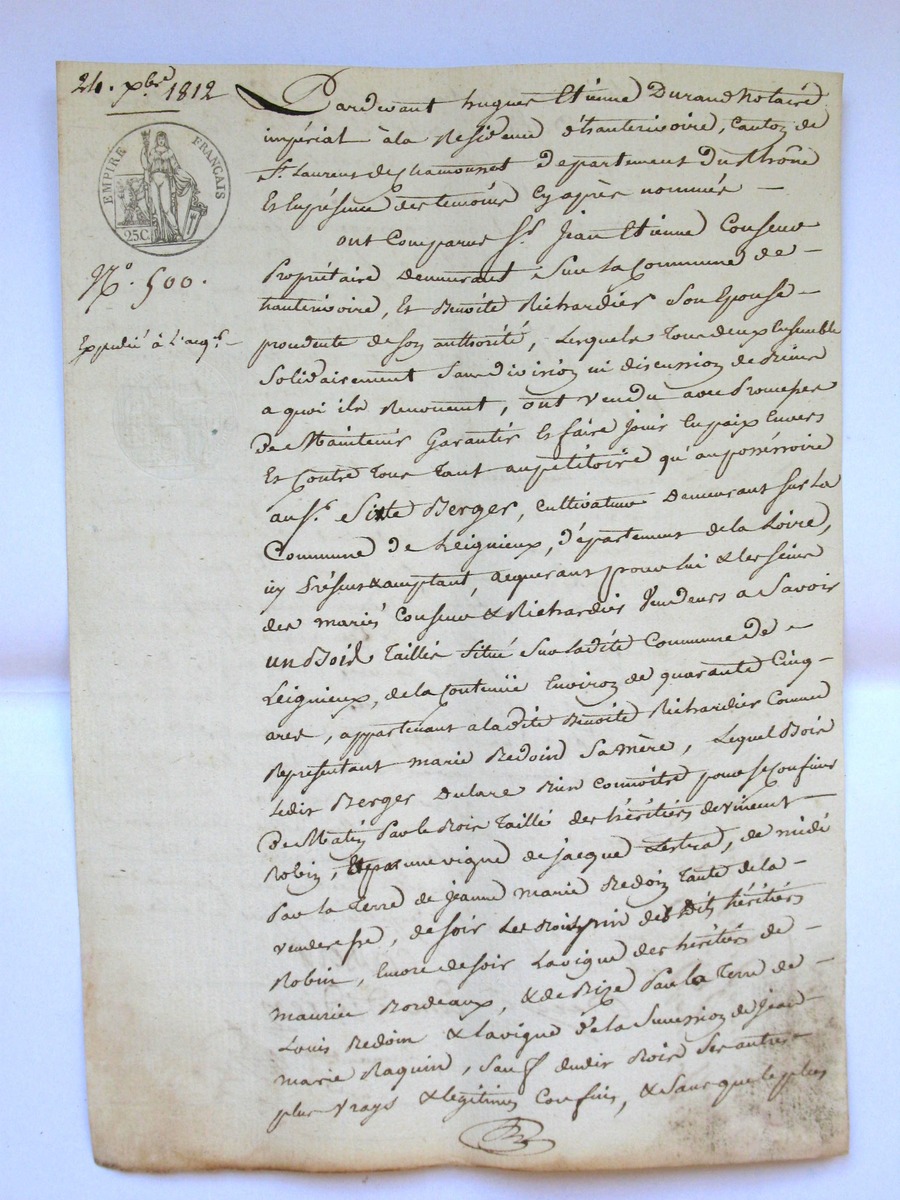 24. xbre 1812
EMPIRE FRANÇAIS
25C.
N.° 500.
Expédié à L'acqr.
Pardevant hugues Etienne Durand Notaire
impérial à la Residence d'hauterivoire, canton de
St. Laurent de Chamousset département du Rhône
Et En présence des temoins Cy après nommés —
ont Comparus Sr. Jean Etienne Couseme
Propriétaire Demeurant Sur la Commune de —
hauterivoire, Et Benoite Richardier Son Epouse —
procédente de Son authorité, Lesquels tous deux Ensemble
Solidairement Sans division ni discussion de Biens
a quoi ils Renoncent, ont vendu avec Promesses
De Maintenir Garantir Et faire Jouir En paix Envers
Et Contre tous tant au pétitoire qu'au possessoire
au Sr. Sixte Berger, cultivateur Demeurant Sur La
Commune de Leignieux, département de la Loire,
icy Présent & acceptant, acquerant pour lui & les Siens
des mariés Couseme & Richardier Vendeurs a Savoir
un Bois Taillis Situé Sur la dite Commune De —
Leignieux, de la Contenüe Environ de quarante Cinq —
ares, appartenant a la dite Benoite Richardier Comme
Représentant marie Redoin Sa mère, Lequel Bois
Ledit Berger Declare Bien Connoître pour Se Confiner
De Matin Par le Bois Taillis des héritiers de vincent
Robin, Et par une vigne de jacque Lestra, de midi
Par la Terre de Jeanne marie Redoin Tante de la —
venderesse, de Soir Les Bois pin des dits héritiers
Robin, Encore de Soir La vigne des héritiers de —
maurice Bordeaux, & de Bize Par la Terre de —
Louis Redoin & la vigne de la Succession de Jean
marie Raquin, Sauf dudit Bois Ses autres
plus Vrays & légitimes Confins, & Sans que le plus